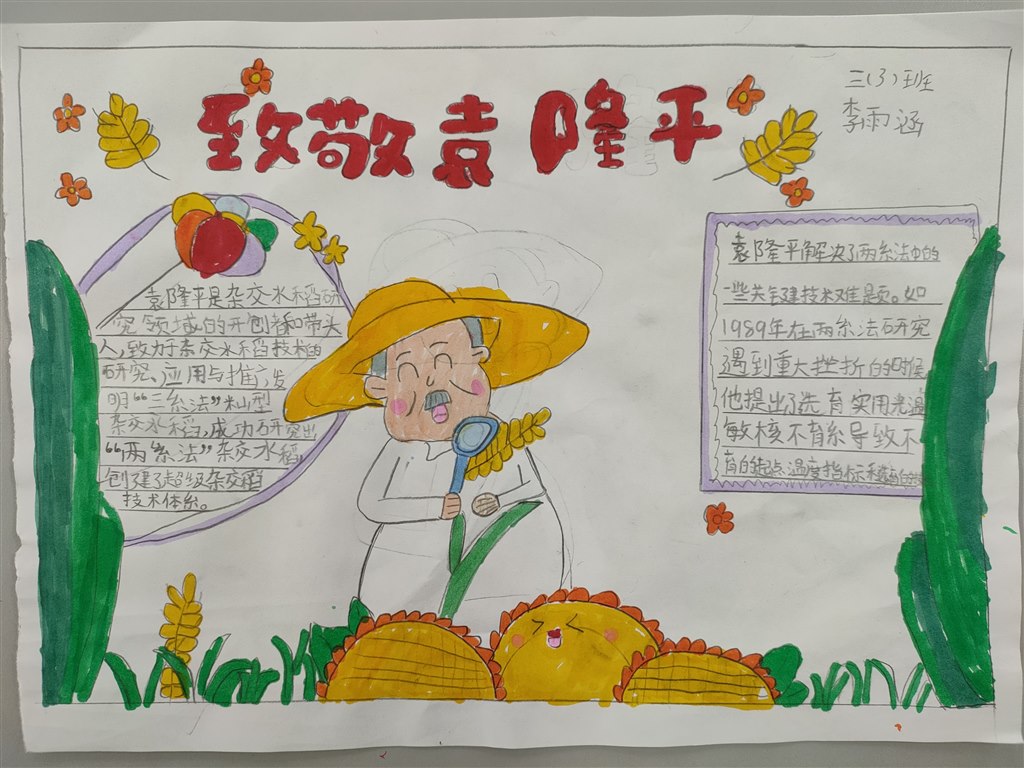 致敬袁隆平
三(3)班
李雨涵
袁隆平是杂交水稻研
究领域的开创者和带头
人,致力于杂交水稻技术的
研究、应用与推广,发
明“三系法”籼型
杂交水稻,成功研究出
“两系法”杂交水稻,
创建了超级杂交稻
技术体系。
袁隆平解决了两系法中的
一些关键技术难题。如
1989年在两系法研究
遇到重大挫折的时候
他提出了选育实用光温
敏核不育系导致不
育的起点温度指标